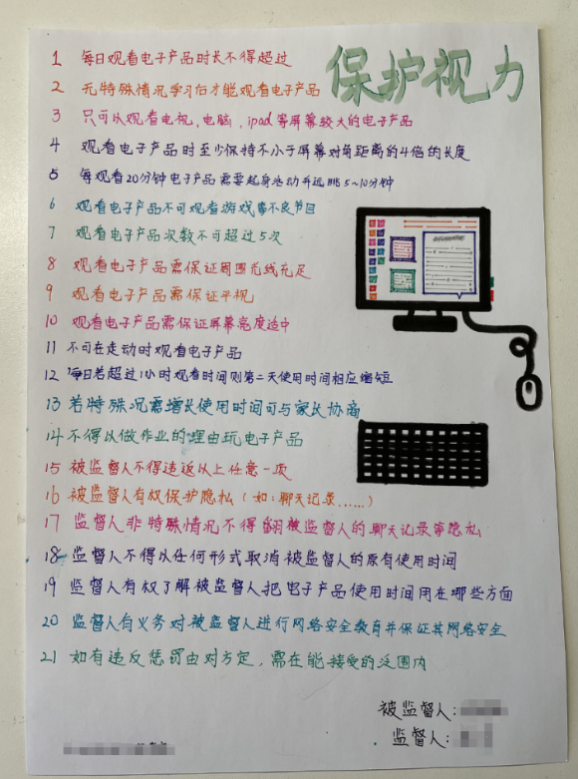 保护视力
1 每日观看电子产品时长不得超过
2 无特殊情况学习后才能观看电子产品
3 只可以观看电视、电脑、ipad等屏幕较大的电子产品
4 观看电子产品时至少保持不小于屏幕对角距离的4倍的长度
5 每观看20分钟电子产品需要起身活动并远眺5~10分钟
6 观看电子产品不可观看游戏等不良节目
7 观看电子产品次数不可超过5次
8 观看电子产品需保证周围光线充足
9 观看电子产品需保证平视
10 观看电子产品需保证屏幕亮度适中
11 不可在走动时观看电子产品
12 每日若超过1小时观看时间则第二天使用时间相应缩短
13 若特殊况需增长使用时间可与家长协商
14 不得以做作业的理由玩电子产品
15 被监督人不得违返以上任意一项
16 被监督人有权保护隐私（如：聊天记录……）
17 监督人非特殊情况不得翻被监督人的聊天记录等隐私
18 监督人不得以任何形式取消被监督人的原有使用时间
19 监督人有权了解被监督人把电子产品使用时间用在哪些方面
20 监督人有义务对被监督人进行网络安全教育并保证其网络安全
21 如有违反惩罚由对方定，需在能接受的范围内
被监督人：
监督人：